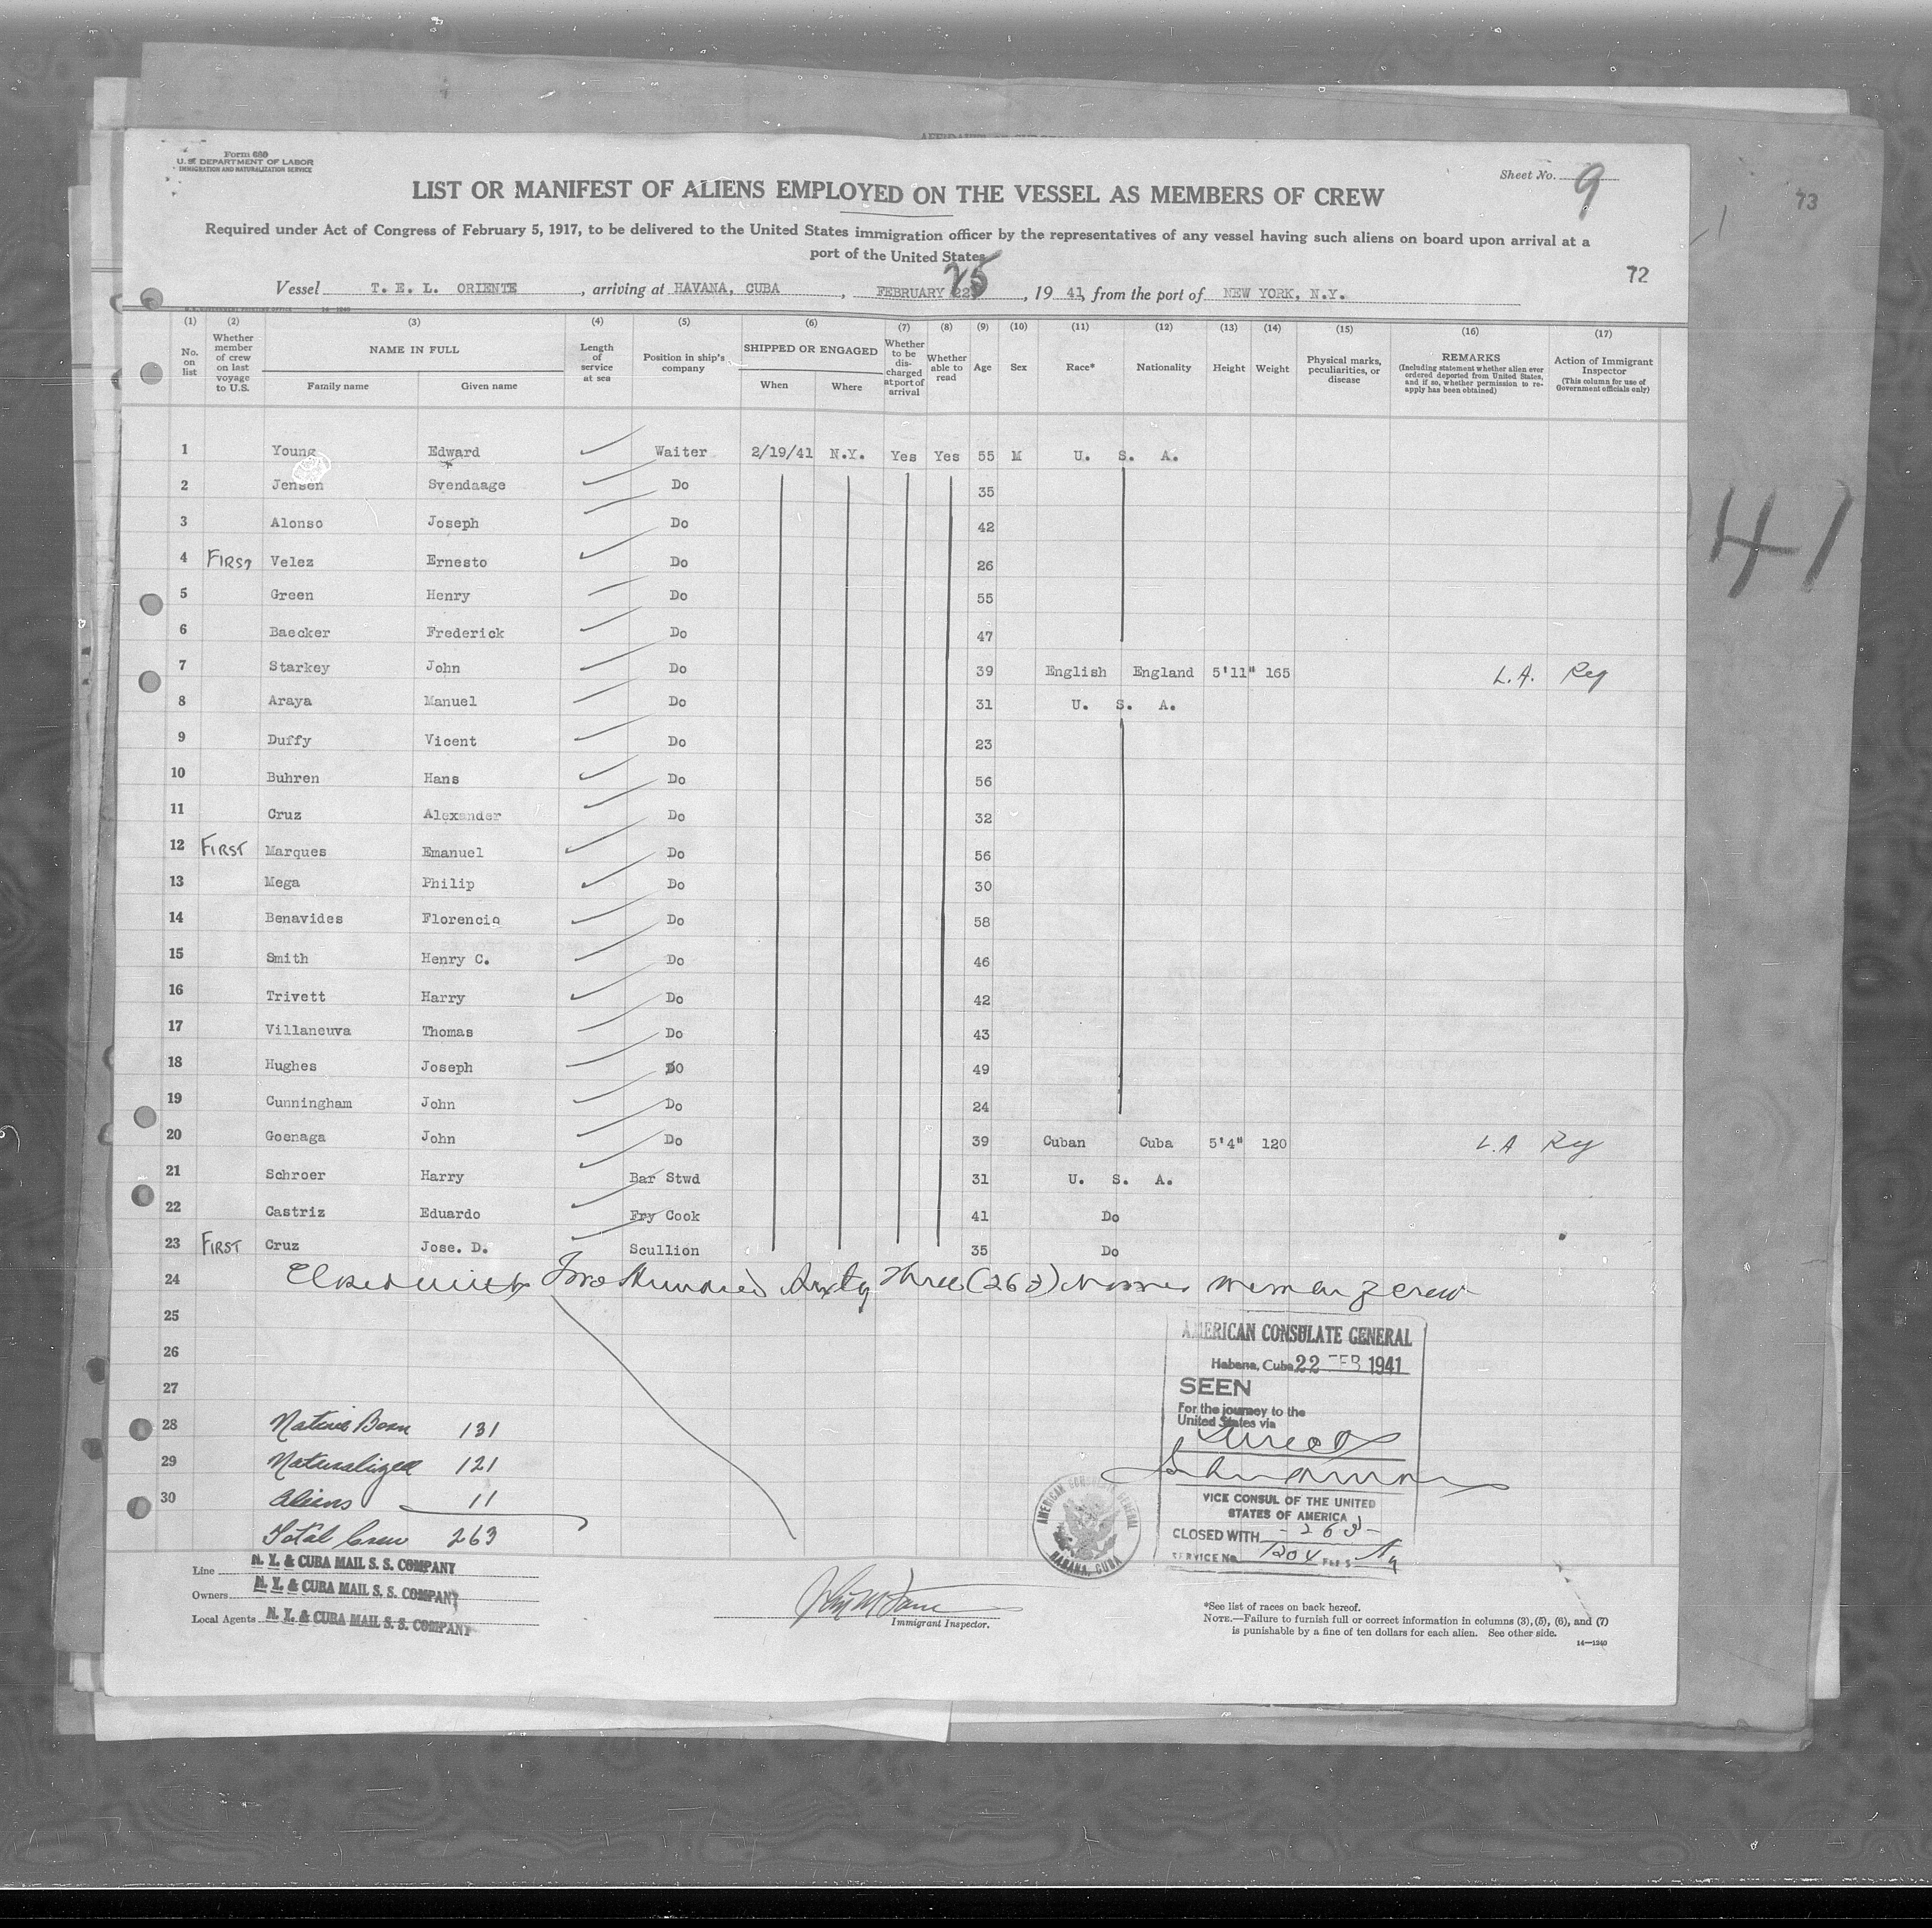 Form 680
U. S. DEPARTMENT OF LABOR
IMMIGRATION AND NATURALIZATION SERVICE
Sheet No. 9
73
LIST OR MANIFEST OF ALIENS EMPLOYED ON THE VESSEL AS MEMBERS OF CREW
Required under Act of Congress of February 5, 1917, to be delivered to the United States immigration officer by the representatives of any vessel having such aliens on board upon arrival at a
port of the United States
72
Vessel T. E. L. ORIENTE, arriving at HAVANA, CUBA, FEBRUARY 22 25, 19 41, from the port of NEW YORK, N.Y.
(1) (2) (3) (4) (5) (6) (7) (8) (9) (10) (11) (12) (13) (14) (15) (16) (17)
No. on list
Whether member of crew on last voyage to U.S.
NAME IN FULL
Family name Given name
Length of service at sea
Position in ship's company
SHIPPED OR ENGAGED
When Where
Whether to be discharged at port of arrival
Whether able to read
Age
Sex
Race*
Nationality
Height
Weight
Physical marks, peculiarities, or disease
REMARKS
(Including statement whether alien ever ordered deported from United States, and if so, whether permission to reapply has been obtained)
Action of Immigrant Inspector
(This column for use of Government officials only)
1 Young Edward Waiter 2/19/41 N.Y. Yes Yes 55 M U. S. A.
2 Jensen Svendaage Do 35
3 Alonso Joseph Do 42
4 FIRST Velez Ernesto Do 26
5 Green Henry Do 55
6 Baecker Frederick Do 47
7 Starkey John Do 39 English England 5'11" 165 L.A. Reg
8 Araya Manuel Do 31 U. S. A.
9 Duffy Vicent Do 23
10 Buhren Hans Do 56
11 Cruz Alexander Do 32
12 FIRST Marques Emanuel Do 56
13 Mega Philip Do 30
14 Benavides Florencio Do 58
15 Smith Henry C. Do 46
16 Trivett Harry Do 42
17 Villaneuva Thomas Do 43
18 Hughes Joseph DO 49
19 Cunningham John Do 24
20 Goenaga John Do 39 Cuban Cuba 5'4" 120 L.A Reg
21 Schroer Harry Bar Stwd 31 U. S. A.
22 Castriz Eduardo Fry Cook 41 Do
23 FIRST Cruz Jose. D. Scullion 35 Do
24 Closed with Two Hundred Sixty Three (263) Names Member of crew
25
26
27
28 Native Born 131
29 Naturalized 121
30 Aliens 11
Total Crew 263
41
AMERICAN CONSULATE GENERAL
Habana, Cuba 22 FEB 1941
SEEN
For the journey to the
United States via
Direct
VICE CONSUL OF THE UNITED
STATES OF AMERICA
CLOSED WITH -263-
SERVICE No. 1204
AMERICAN CONSULATE GENERAL HABANA, CUBA
Line N. Y. & CUBA MAIL S. S. COMPANY
Owners N. Y. & CUBA MAIL S. S. COMPANY
Local Agents N. Y. & CUBA MAIL S. S. COMPANY
Immigrant Inspector.
*See list of races on back hereof.
NOTE.—Failure to furnish full or correct information in columns (3), (5), (6), and (7)
is punishable by a fine of ten dollars for each alien. See other side.
14—1240